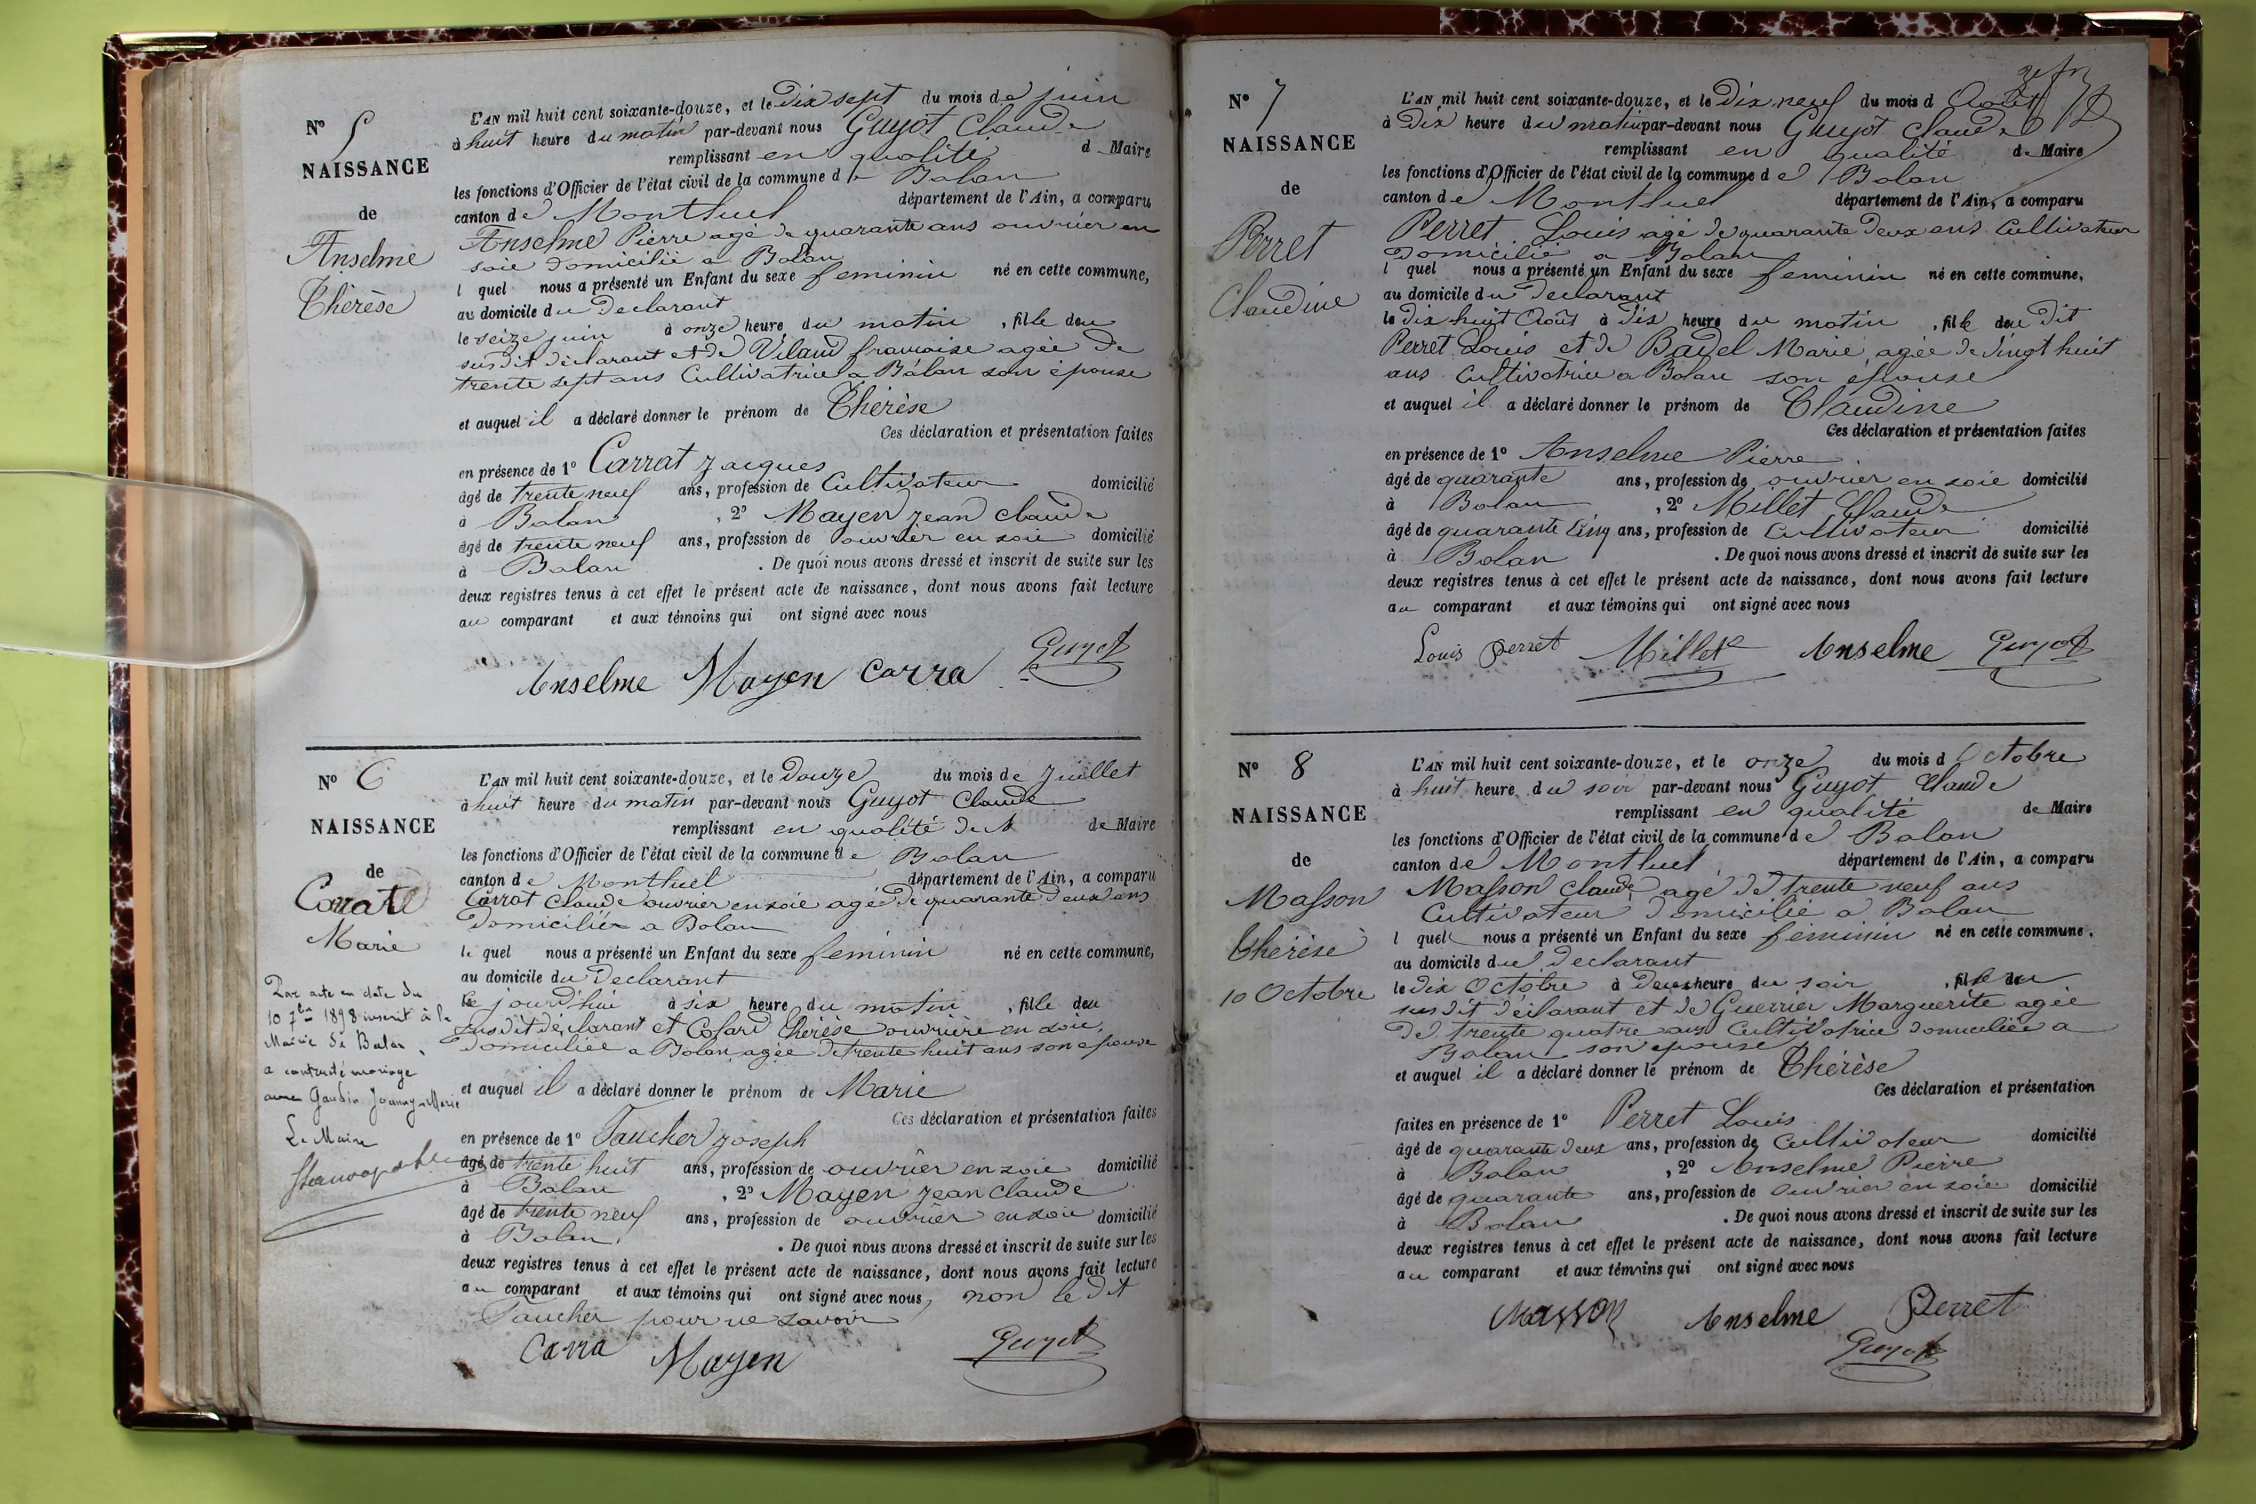 N° 5
NAISSANCE
de
Anselme
Thérèse
L'AN mil huit cent soixante-douze, et le Dix sept du mois de juin
à huit heure du matin par-devant nous Guyot Claude
remplissant en qualité d Maire
les fonctions d'Officier de l'état civil de la commune de Balan
canton de Montluel département de l'Ain, a comparu
Anselme Pierre agé de quarante ans ouvrier en
soie domicilié a Balan
l quel nous a présenté un Enfant du sexe feminin né en cette commune,
au domicile du Declarant
le seize juin à onze heure du matin , fille du
susdit déclarant et de Viland francoise agée de
trente sept ans Cultivatrice a Balan son épouse
et auquel il a déclaré donner le prénom de Thérèse
Ces déclaration et présentation faites
en présence de 1° Carrat Jacques
âgé de trente neuf ans, profession de Cultivateur domicilié
à Balan , 2° Mayen Jean Claude
âgé de trente neuf ans, profession de ouvrier en soie domicilié
à Balan . De quoi nous avons dressé et inscrit de suite sur les
deux registres tenus à cet effet le présent acte de naissance, dont nous avons fait lecture
au comparant et aux témoins qui ont signé avec nous
Anselme Mayen Carra Guyot
N° 6
NAISSANCE
de
Carrat
Marie
Par acte en date du
10 7bre 1898 inscrit à la
Mairie de Balan
a contracté mariage
avec Gaudin Joanny Marie
Le Maire
L'AN mil huit cent soixante-douze, et le Douze du mois de Juillet
à huit heure du matin par-devant nous Guyot Claude
remplissant en qualité de Maire
les fonctions d'Officier de l'état civil de la commune de Balan
canton de Montluel département de l'Ain, a comparu
Carrat Claude ouvrier en soie agé de quarante deux ans
Domicilié a Balan
le quel nous a présenté un Enfant du sexe feminin né en cette commune,
au domicile du Declarant
le jourd'hui à six heure du matin , fille du
susdit déclarant et Cofard Thérèse ouvrière en soie,
domiciliée a Balan agée de trente huit ans son épouse
et auquel il a déclaré donner le prénom de Marie
Ces déclaration et présentation faites
en présence de 1° Faucher Joseph
âgé de trente huit ans, profession de ouvrier en soie domicilié
à Balan , 2° Mayen Jean Claude
âgé de trente neuf ans, profession de ouvrier en soie domicilié
à Balan . De quoi nous avons dressé et inscrit de suite sur les
deux registres tenus à cet effet le présent acte de naissance, dont nous avons fait lecture
au comparant et aux témoins qui ont signé avec nous, non le dit
Faucher pour ne savoir
Carra Mayen Guyot
N° 7
NAISSANCE
de
Perret
Claudine
L'AN mil huit cent soixante-douze, et le Dix neuf du mois d Août
à Dix heure du matin par-devant nous Guyot Claude
remplissant en qualité de Maire
les fonctions d'Officier de l'état civil de la commune de Balan
canton de Montluel département de l'Ain, a comparu
Perret Louis agé de quarante Deux ans Cultivateur
Domicilié a Balan
l quel nous a présenté un Enfant du sexe feminin né en cette commune,
au domicile du Declarant
le Dix huit Août à Dix heure du matin , fille du Dit
Perret Louis et de Badel Marie agée de Vingt huit
ans Cultivatrice a Balan son épouse
et auquel il a déclaré donner le prénom de Claudine
Ces déclaration et présentation faites
en présence de 1° Anselme Pierre
âgé de quarante ans, profession de ouvrier en soie domicilié
à Balan , 2° Millet Claude
âgé de quarante Cinq ans, profession de Cultivateur domicilié
à Balan . De quoi nous avons dressé et inscrit de suite sur les
deux registres tenus à cet effet le présent acte de naissance, dont nous avons fait lecture
au comparant et aux témoins qui ont signé avec nous
Louis Perret Millet Anselme Guyot
N° 8
NAISSANCE
de
Masson
Thérèse
10 Octobre
L'AN mil huit cent soixante-douze, et le onze du mois d Octobre
à huit heure du soir par-devant nous Guyot Claude
remplissant en qualité de Maire
les fonctions d'Officier de l'état civil de la commune de Balan
canton de Montluel département de l'Ain, a comparu
Masson Claude agé de trente neuf ans
Cultivateur Domicilié a Balan
l quel nous a présenté un Enfant du sexe féminin né en cette commune,
au domicile du Declarant
le Dix Octobre à Deux heure du soir , fille du
susdit déclarant et de Guerrier Marguerite agée
De trente quatre ans Cultivatrice domiciliée a
Balan son épouse
et auquel il a déclaré donner le prénom de Thérèse
Ces déclaration et présentation
faites en présence de 1° Perret Louis
âgé de quarante deux ans, profession de Cultivateur domicilié
à Balan , 2° Anselme Pierre
âgé de quarante ans, profession de Ouvrier en soie domicilié
à Balan . De quoi nous avons dressé et inscrit de suite sur les
deux registres tenus à cet effet le présent acte de naissance, dont nous avons fait lecture
au comparant et aux témoins qui ont signé avec nous
Masson Anselme Perret
Guyot